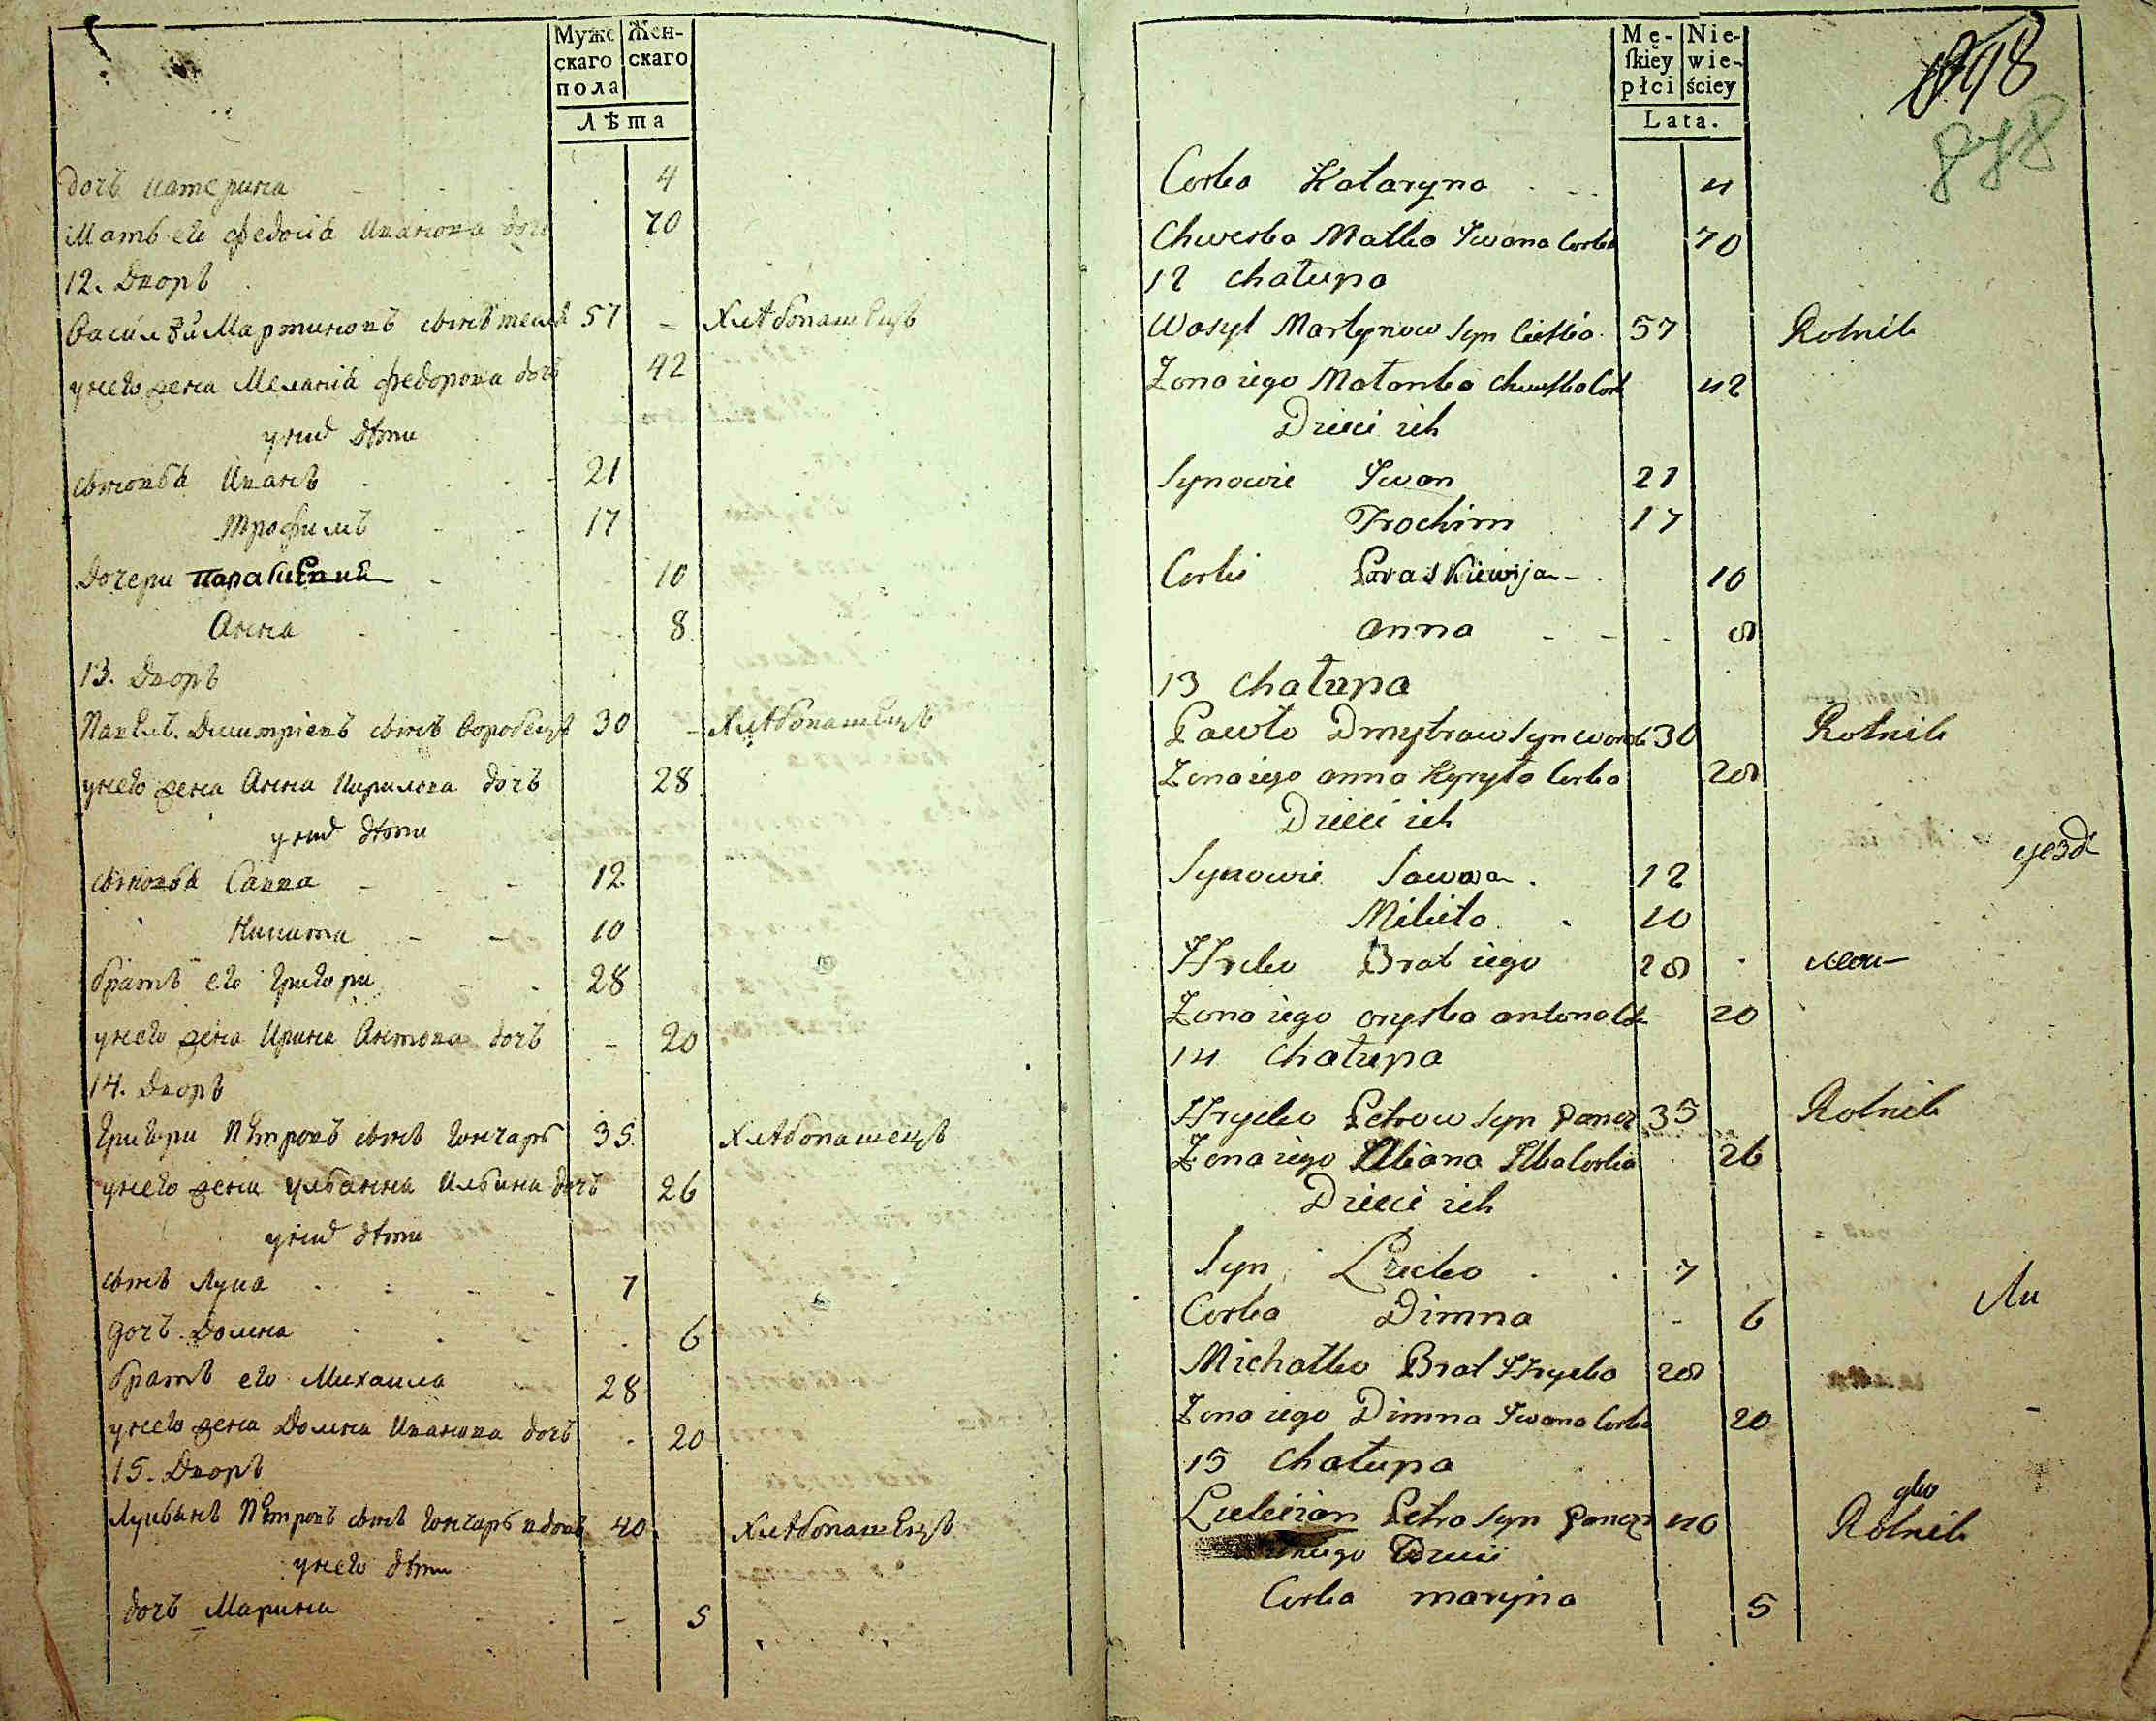 Муже Жен-
скаго скаго
пола
Лѣта
дочь катерина 4
Мать его Федосія Иванова дочь 70
12. Дворъ
Василѣй Мартиновъ сынъ 57 Хлѣбопашецъ
унего жена Меланія федорова дочь 42
уних дѣти
сыновья Иванъ 21
Трофимъ 17
Дочери Параскевия 10
Анна 8
13. Дворъ
Павелъ Дмитріевъ сынъ Воробецъ 30 Хлѣбопашецъ
унего жена Анна Кирилова дочь 28
уних дѣти
сыновья Савва 12
Никита 10
братъ его григори 28
унего жена Ирина Антонова дочь 20
14. Дворъ
григори Петровъ сынъ гончаръ 35 Хлѣбопашецъ
унего жена ульянна Ильина дочь 26
уних дѣти
сынъ Лука 7
дочь Домна 6
братъ его Михаила 28
унего жена Домна Иванова дочь 20
15. Дворъ
Лукьянъ Петровъ сынъ гончаръ вдовъ 40 Хлѣбопашецъ
унего дѣти
дочь Марина 5
Mę- Nie-
ſkiey wie-
płci ściey
Lata.
878
Corka Kataryna 4
Chweska Matka Iwana Corka 70
12 Chałupa
Wasyl Martynow Syn 57 Rolnik
Zona iego Małanka Chweska Cork 42
Dzieci ich
Synowie Iwan 21
Trochim 17
Corki Paraskiewija 10
Anna 8
13 Chałupa
Pawło Dmytrow Syn Worob 30 Rolnik
Zona iego Anna Kyryła Corka 28
Dzieci ich
Synowie Sawwa 12
Mikita 10
Hrcko Brat iego 28
Zona iego Oryska Antona 20
14 Chałupa
Hrycko Petrow Syn Goncz 35 Rolnik
Zona iego Uliana Ilka Corka 26
Dzieci ich
Syn Lucko 7
Corka Dimna 6
Michałko Brat Hrycka 28
Zona iego Dimna Iwana Corka 20
15 Chałupa
Lukian Petro Syn Goncz 40 Rolnik
Dzieci
Corka Maryna 5